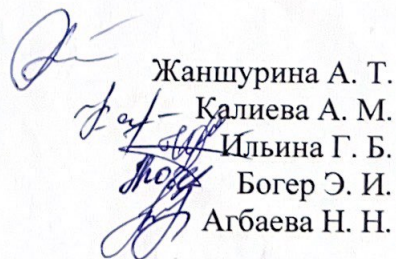 Жаншурина А. Т.
Қалиева А. М.
Ильина Г. Б.
Богер Э. И.
Агбаева Н. Н.